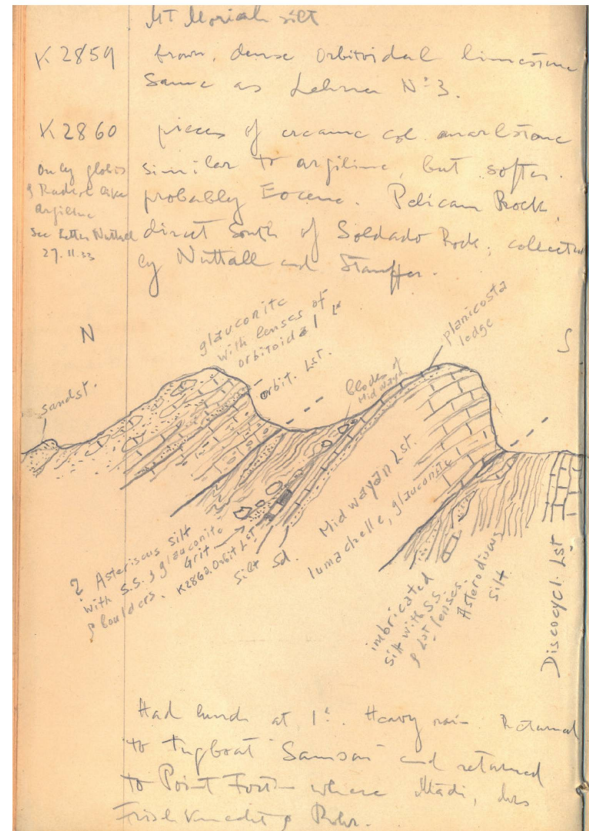 Mt Moriah silt
K 2859 brown, dense orbitoidal limestone
Same as Lehner No 3.
K 2860 pieces of creame col. marlstone
similar to argiline, but softer.
probably Eocene. Pelican Rock,
direct South of Soldado Rock, collected
by Nuttall and Stauffer.
Only globis
& Radiol. like
Argiline
See letter Nuttall
27.11.33
N
S
sandst.
glauconite
with lenses of
orbitoidal Lst
orbit. Lst.
Blocks of
Midwayan
planicosta
lodge
? Asteriscus silt
with S.S. & glauconite
& boulders.
Grit
K2862 Orbit Lst
Silt
Sd.
Midwayan Lst.
lumachelle, glauconite
imbricated
silt with S.S.
& Lst lenses.
Asterodiscus
silt
Discocycl. Lst
Had lunch at 1h. Heavy rain. Returned
to tugboat "Samson" and returned
to Point Fortin where